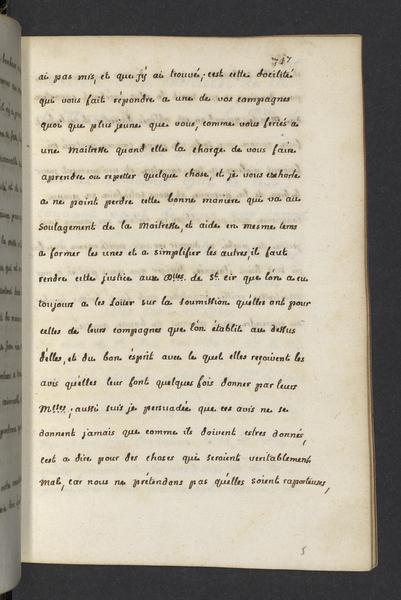 757
ai pas mis, et que j'y ai trouvé; c'est cette docilité
qui vous fait répondre a une de vos compagnes
quoi que plus jeune que vous, comme vous feriés a
une Maitresse quand elle la charge de vous faire
aprendre ou repetter quelque chose, et je vous exhorte
a ne point perdre cette bonne maniere qui va au
Soulagement de la Maitresse, et aide en mesme tems
a former les unes et a simplifier les autres, il faut
rendre cette justice aux D.lles de St. cir que l'on a eu
toujours a les Loüer sur la soumission qu'elles ont pour
celles de leurs compagnes que l'on établit au dessus
d'elles, et du bon ésprit avec le quel elles reçoivent les
avis qu'elles leur font quelques fois donner par leurs
M.sses; aussi suis je persuadée que ces avis ne se
donnent jamais que comme ils doivent estres donnés,
c'est a dire pour des choses qui seroient veritablement
mal, car nous ne prétendons pas qu'elles soient raporteuses,